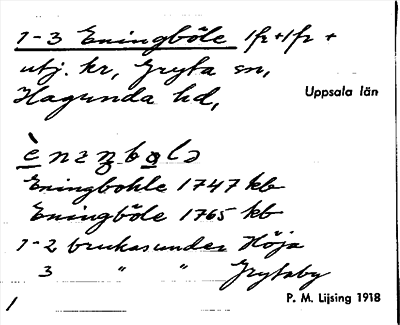 1-3 Eningböle 1fr+1fr+
utj. kr, Gryta sn,
Hagunda hd,
Uppsala län
Eningbohle 1747 kb
Eningböle 1765 kb
1-2 brukas under Höja
3 " " Grytaby
1
P. M. Lijsing 1918